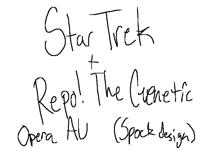 Star Trek
+
Repo! The Genetic
Opera AU (Spock design)